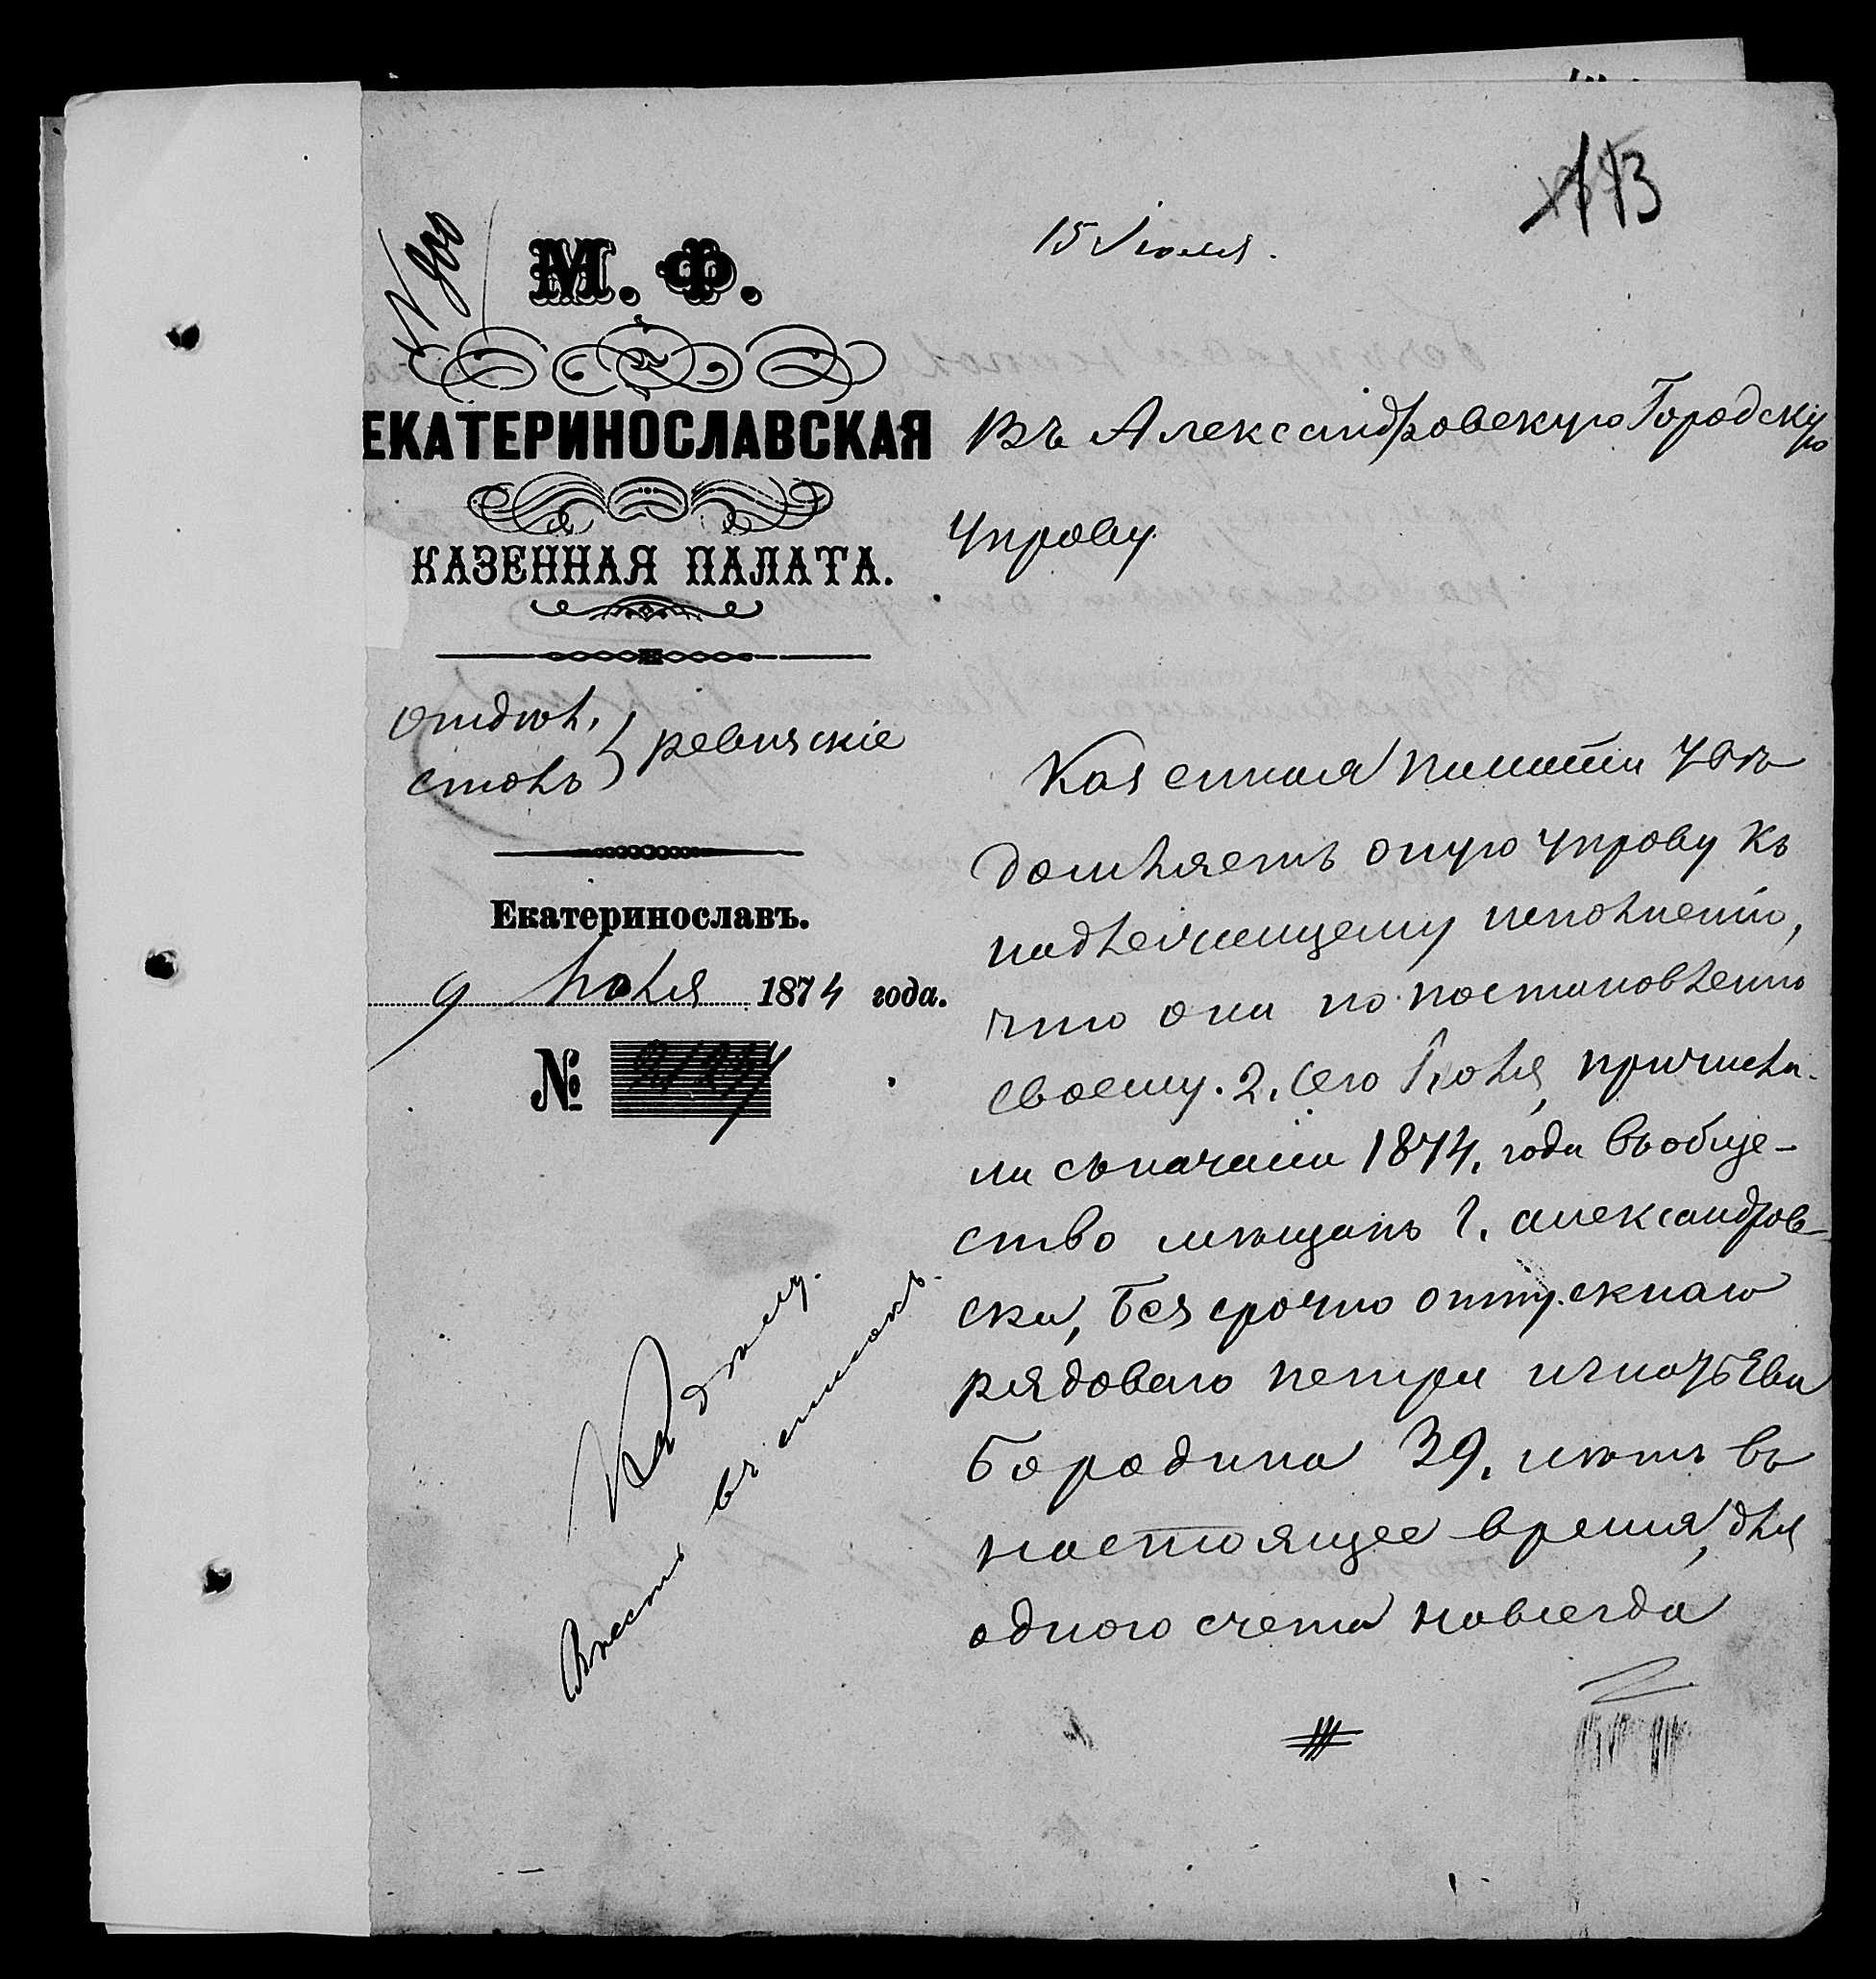 113
15 Іюля.
М. Ф.
ЕКАТЕРИНОСЛАВСКАЯ
КАЗЕННАЯ ПАЛАТА.
отдѣл.
столъ } ревизскіе
Екатеринославъ.
9 Іюля 1874 года.
№
Въ Александровскую Городскую
Управу
Казенная палата увѣ
домляетъ оную управу къ
надлежащему исполненію,
что она по постановленію
своему 2. сего Іюля, причисли-
ла съ начала 1874. года въ обще-
ство мѣщанъ г. александров-
ска, безсрочно отпускнаго
рядоваго петра игнатьева
Бородина 39. лѣтъ въ
настоящее время, для
одного счета навсегда
Къ дѣлу.
Внесть въ списокъ.